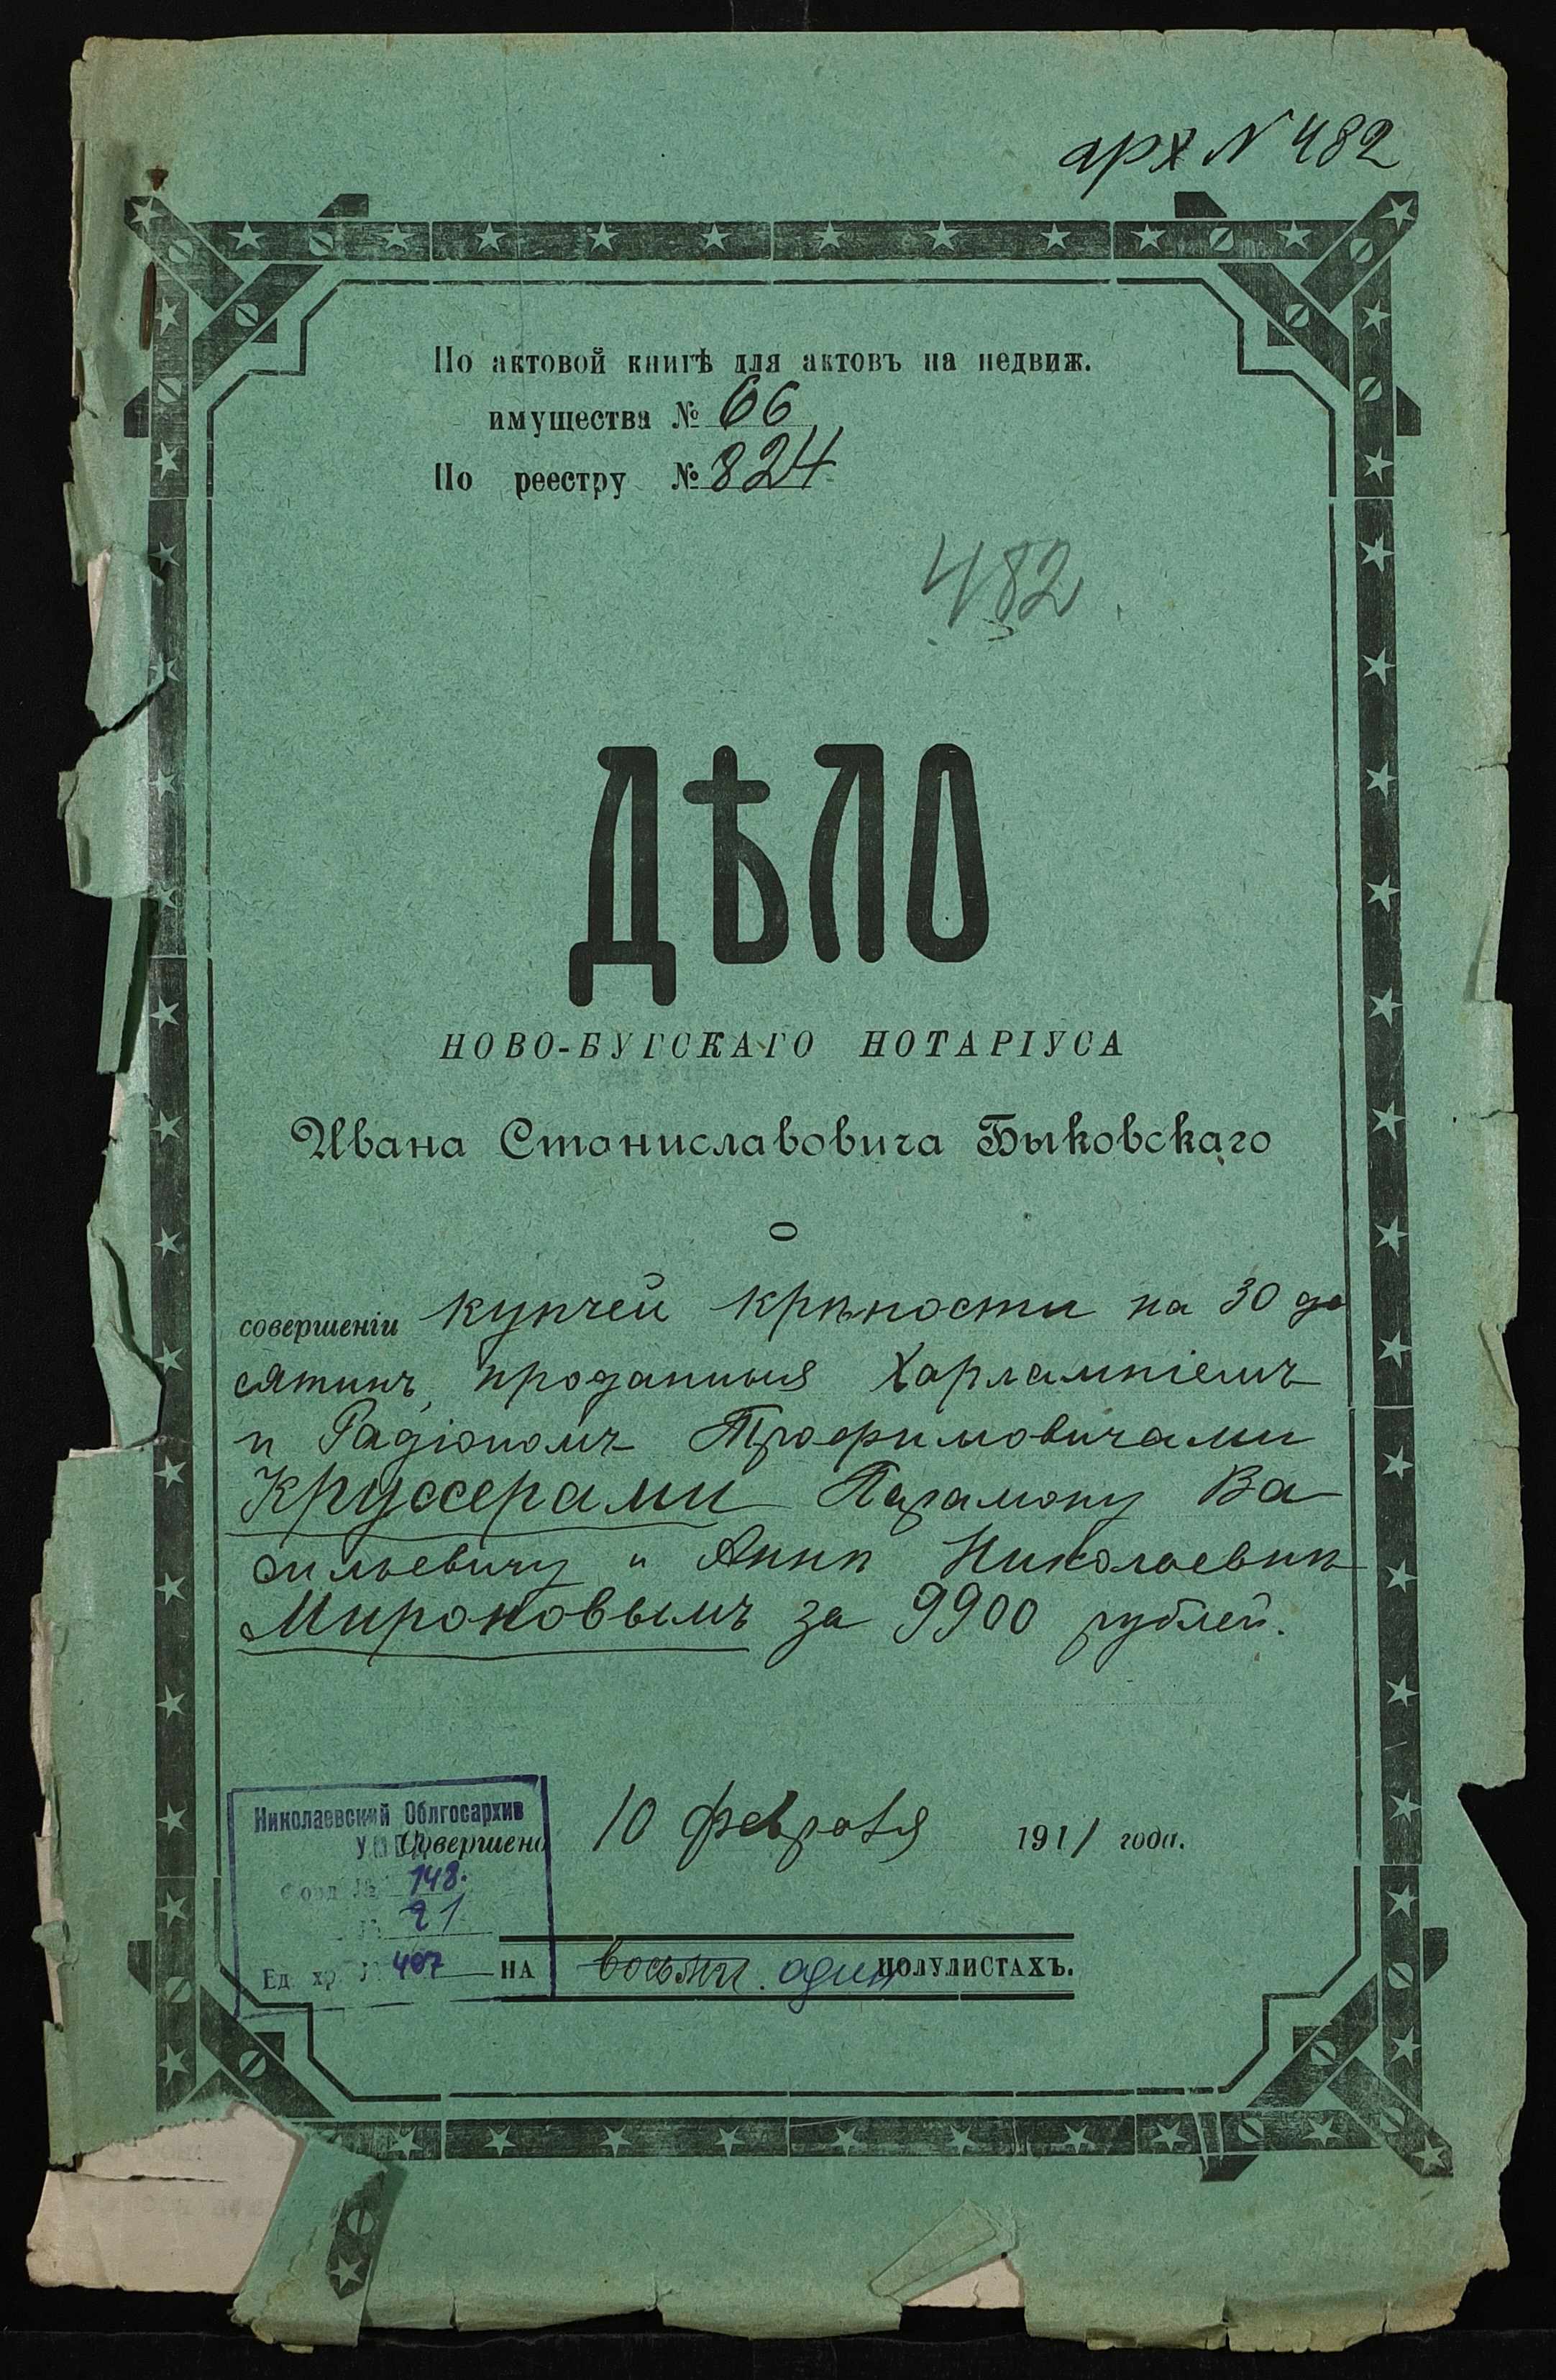 арх N 482
По актовой книгѣ для актовъ на недвиж.
имущества № 66
По реестру № 824
482
ДѢЛО
НОВО-БУГСКАГО НОТАРІУСА
Ивана Станиславовича Быковскаго
О
совершеніи купчей крѣпости на 30 де
сятинъ, проданныя Харлампіемъ
и Радіономъ Трофимовичами
Круссерами Парамону Ва
сильевичу и Аннѣ Николаевнѣ
Мироновымъ за 9900 рублей.
Николаевский Облгосархив
Совершено 10 февраля 1911 года.
Фонд № 148.
21
Ед. хр. № 407
НА восьми один полулистахъ.